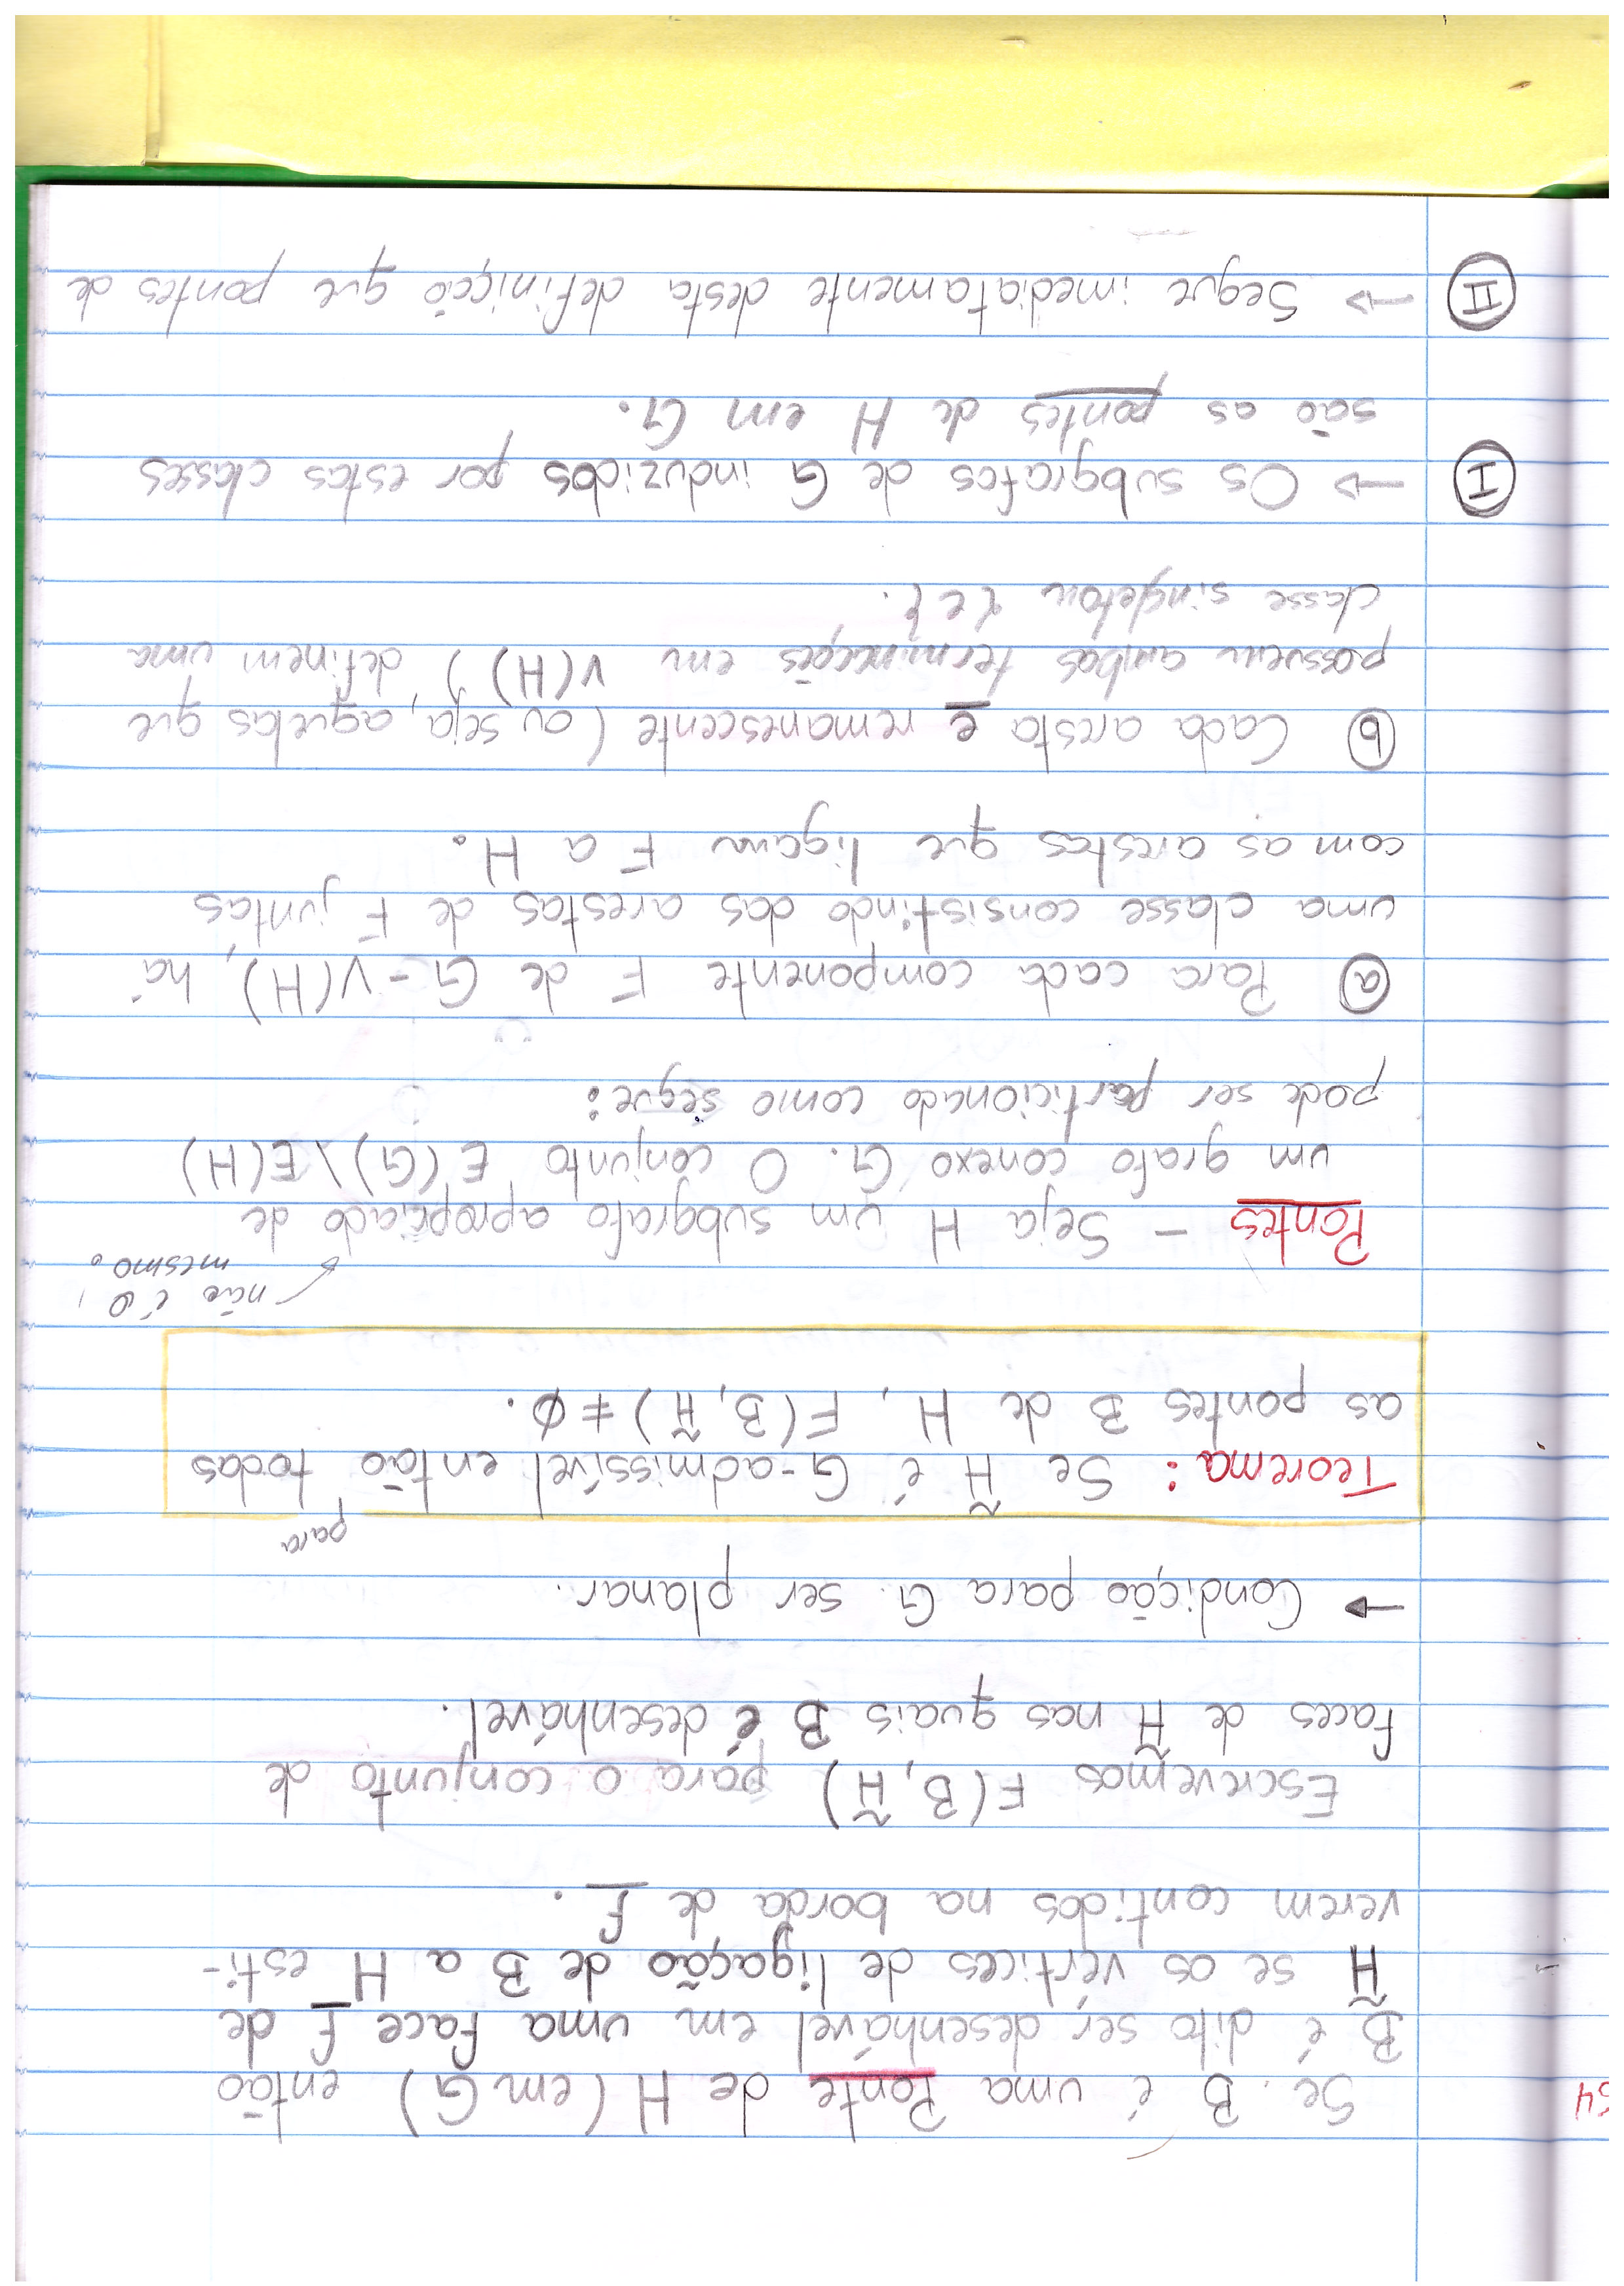 54
Se B é uma Ponte de H (em G) então
B é dito ser desenhável em uma face f de
H̃ se os vértices de ligação de B a H esti-
verem contidos na borda de f.
Escrevemos F(B, H̃) para o conjunto de
faces de H̃ nas quais B é desenhável.
→ Condição para G ser planar.
para
Teorema: Se H̃ é G-admissível então todas
as pontes B de H, F(B, H̃) ≠ ∅.
não é o
mesmo.
Pontes – Seja H um subgrafo apropriado de
um grafo conexo G. O conjunto E(G)\E(H)
pode ser particionado como segue:
ⓐ Para cada componente F de G-V(H), há
uma classe consistindo das arestas de F juntas
com as arestas que ligam F a H.
ⓑ Cada aresta e remanescente (ou seja, aquelas que
possuem ambas terminações em V(H)) definem uma
classe singleton {e}.
I → Os subgrafos de G induzidos por estas classes
são as pontes de H em G.
II → Segue imediatamente desta definição que pontes de